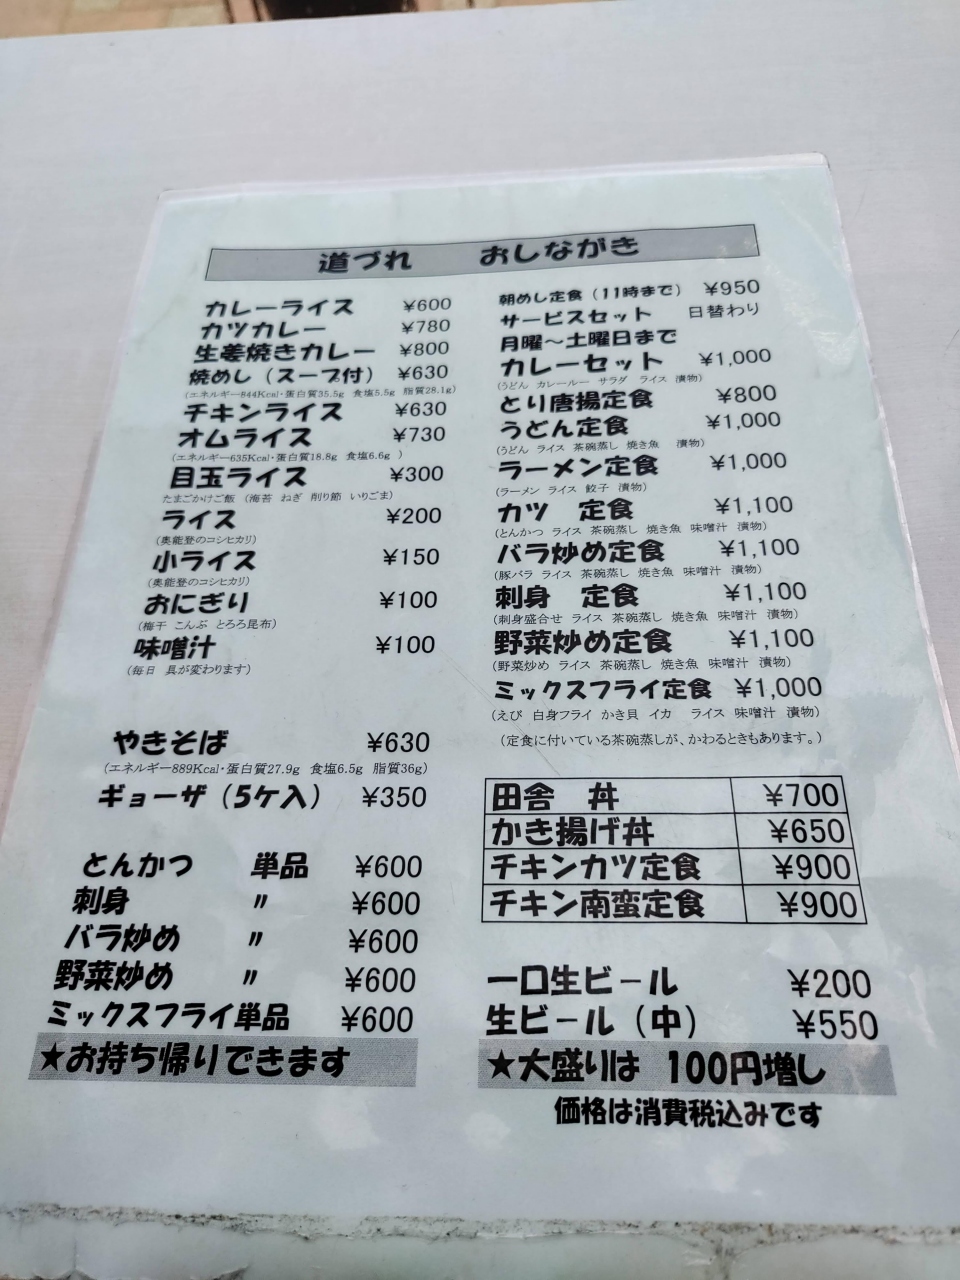 道づれ　おしながき
カレーライス ¥600
カツカレー ¥780
生姜焼きカレー ¥800
焼めし（スープ付） ¥630
（エネルギー844Kcal・蛋白質35.5g 食塩5.5g 脂質28.1g）
チキンライス ¥630
オムライス ¥730
（エネルギー635Kcal・蛋白質18.8g 食塩6.6g ）
目玉ライス ¥300
たまごかけご飯（海苔 ねぎ 削り節 いりごま）
ライス ¥200
（奥能登のコシヒカリ）
小ライス ¥150
（奥能登のコシヒカリ）
おにぎり ¥100
（梅干 こんぶ とろろ昆布）
味噌汁 ¥100
（毎日 具が変わります）
やきそば ¥630
（エネルギー889Kcal・蛋白質27.9g 食塩6.5g 脂質36g）
ギョーザ（5ケ入） ¥350
とんかつ 単品 ¥600
刺身 〃 ¥600
バラ炒め 〃 ¥600
野菜炒め 〃 ¥600
ミックスフライ単品 ¥600
★お持ち帰りできます
朝めし定食（11時まで） ¥950
サービスセット 日替わり
月曜～土曜日まで
カレーセット ¥1,000
（うどん カレールー サラダ ライス 漬物）
とり唐揚定食 ¥800
うどん定食 ¥1,000
（うどん ライス 茶碗蒸し 焼き魚 漬物）
ラーメン定食 ¥1,000
（ラーメン ライス 餃子 漬物）
カツ 定食 ¥1,100
（とんかつ ライス 茶碗蒸し 焼き魚 味噌汁 漬物）
バラ炒め定食 ¥1,100
（豚バラ ライス 茶碗蒸し 焼き魚 味噌汁 漬物）
刺身 定食 ¥1,100
（刺身盛合せ ライス 茶碗蒸し 焼き魚 味噌汁 漬物）
野菜炒め定食 ¥1,100
（野菜炒め ライス 茶碗蒸し 焼き魚 味噌汁 漬物）
ミックスフライ定食 ¥1,000
（えび 白身フライ かき貝 イカ ライス 味噌汁 漬物）
（定食に付いている茶碗蒸しが、かわるときもあります。）
田舎 丼 ¥700
かき揚げ丼 ¥650
チキンカツ定食 ¥900
チキン南蛮定食 ¥900
一口生ビール ¥200
生ビール（中） ¥550
★大盛りは 100円増し
価格は消費税込みです